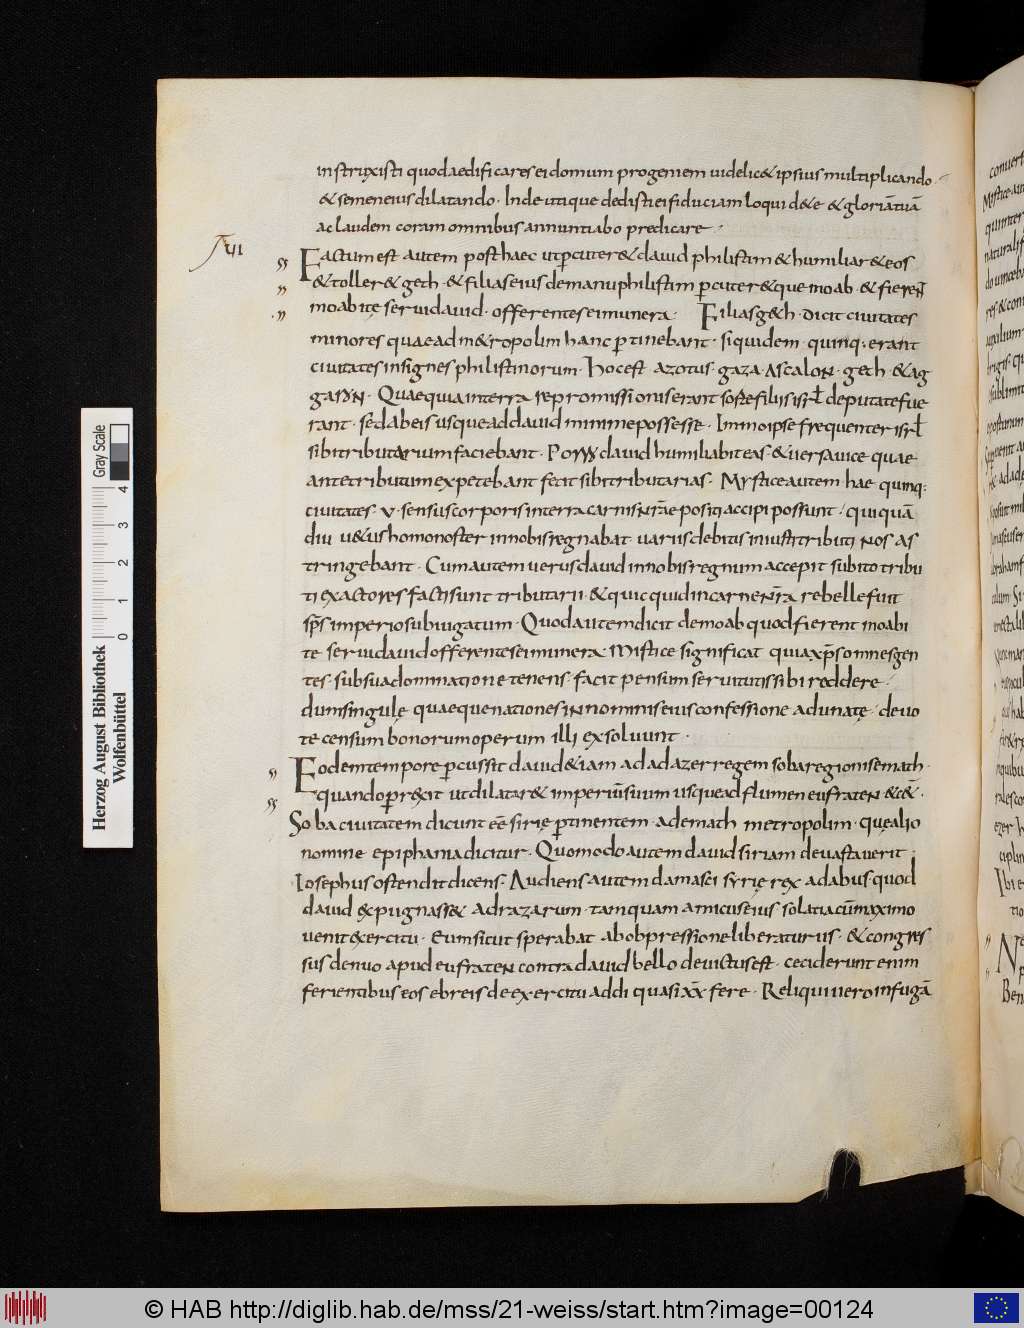 instruxisti quod aedificares ei domum progeniem uidelic& ipsius multiplicando
& semen eius dilatando. Inde utique dedisti ei fiduciam loqui d& e & gloriā tuā
ac laudem coram omnibus annuntiabo predicare.
xui
Factum est autem post haec ut ꝑcuter& dauid philistim & humiliar& eos
& toller& geth. & filias eius de manu philistim ꝑcuter& que moab. & fierent
moabitę serui dauid. offerentes ei munera. Filias g&h. dicit ciuitates
minores quae ad m&ropolim hanc ꝑtinebant. siquidem quinq; erant
ciuitates insignes philistinorum. Hoc est azotus. gaza. Ascalon. geth. & ag
garon. Quae quia in terra repromissionis erant sorte filiis isrł deputate fue
rant. sed ab eis usque ad dauid minime possesse. Immo ipse frequenter isrł
sibi tributarium faciebant. Porro dauid humiliabit eas. & uersa uice quae
ante tributum expetebant fecit sibi tributarias. Mystice autem hae quinq;
ciuitates. v. sensus corporis in terra carnis nrāe positi accipi possunt. qui quā
diu u&us homo noster in nobis regnabat uariis debitis iniusti tributi nos as
tringebant. Cum autem uerus dauid in nobis regnum accepit subito tribu
ti exactores facti sunt tributarii. & quicquid in carne nr̄a rebelle fuit
sp̄s imperio subiugatum. Quod autem dicit de moab quod fierent moabi
te serui dauid offerentes ei munera mistice significat quia xp̄s omnes gen
tes. sub sua dominatione tenens. facit pensum seruitutis sibi reddere.
dum singulę quaeque nationes in nominis eius confessione adunatę. deuo
te censum bonorum operum illi exsoluunt.
Eodem tempore ꝑcussit dauid &iam adadazer regem soba regionis emath.
quando ꝑrexit ut dilatar& imperiū suum usque ad flumen eufraten &c&.
Soba ciuitatem dicunt eē sirię ꝑtinentem. ad emath metropolim. quę alio
nomine epiphania dicitur. Quomodo autem dauid siriam deuastauerit.
Iosephus ostendit dicens. Audiens autem damasci syrię rex adabus. quod
dauid expugnass& adrazarum. tamquam amicus eius solatia cū maximo
uenit exercitu. Eum sicut sperabat ab obpressione liberaturus. & congres
sus denuo apud eufraten contra dauid bello deuictus est. ceciderunt enim
ferientibus eos ebreis de exercitu addi quasi xx̄ fere. Reliqui uero in fugā
Herzog August Bibliothek
Wolfenbüttel
Gray Scale
0 1 2 3 4
© HAB http://diglib.hab.de/mss/21-weiss/start.htm?image=00124